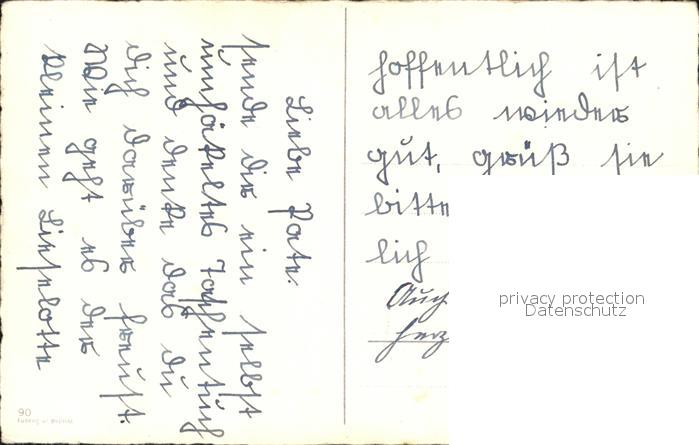 Liebe Pate:
sende dir ein selbst
umhäkeltes Taschentuch
und denke das du
dich darüber freust.
Wie geht es der
kleinen Lieselotte
hoffentlich ist
alles wieder
gut, grüß sie
bitte
lich
Auch
herz
privacy protection
Datenschutz
90